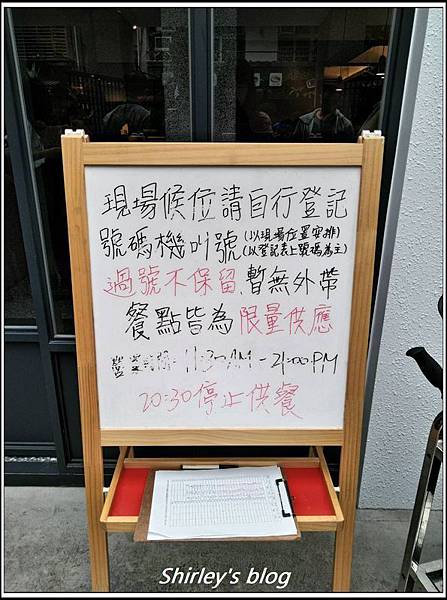 現場候位請自行登記
號碼機叫號(以現場位置安排)
(以登記表上號碼為主)
過號不保留,暫無外帶
餐點皆為限量供應
11:30AM-21:00PM
20:30停止供餐
Shirley's blog